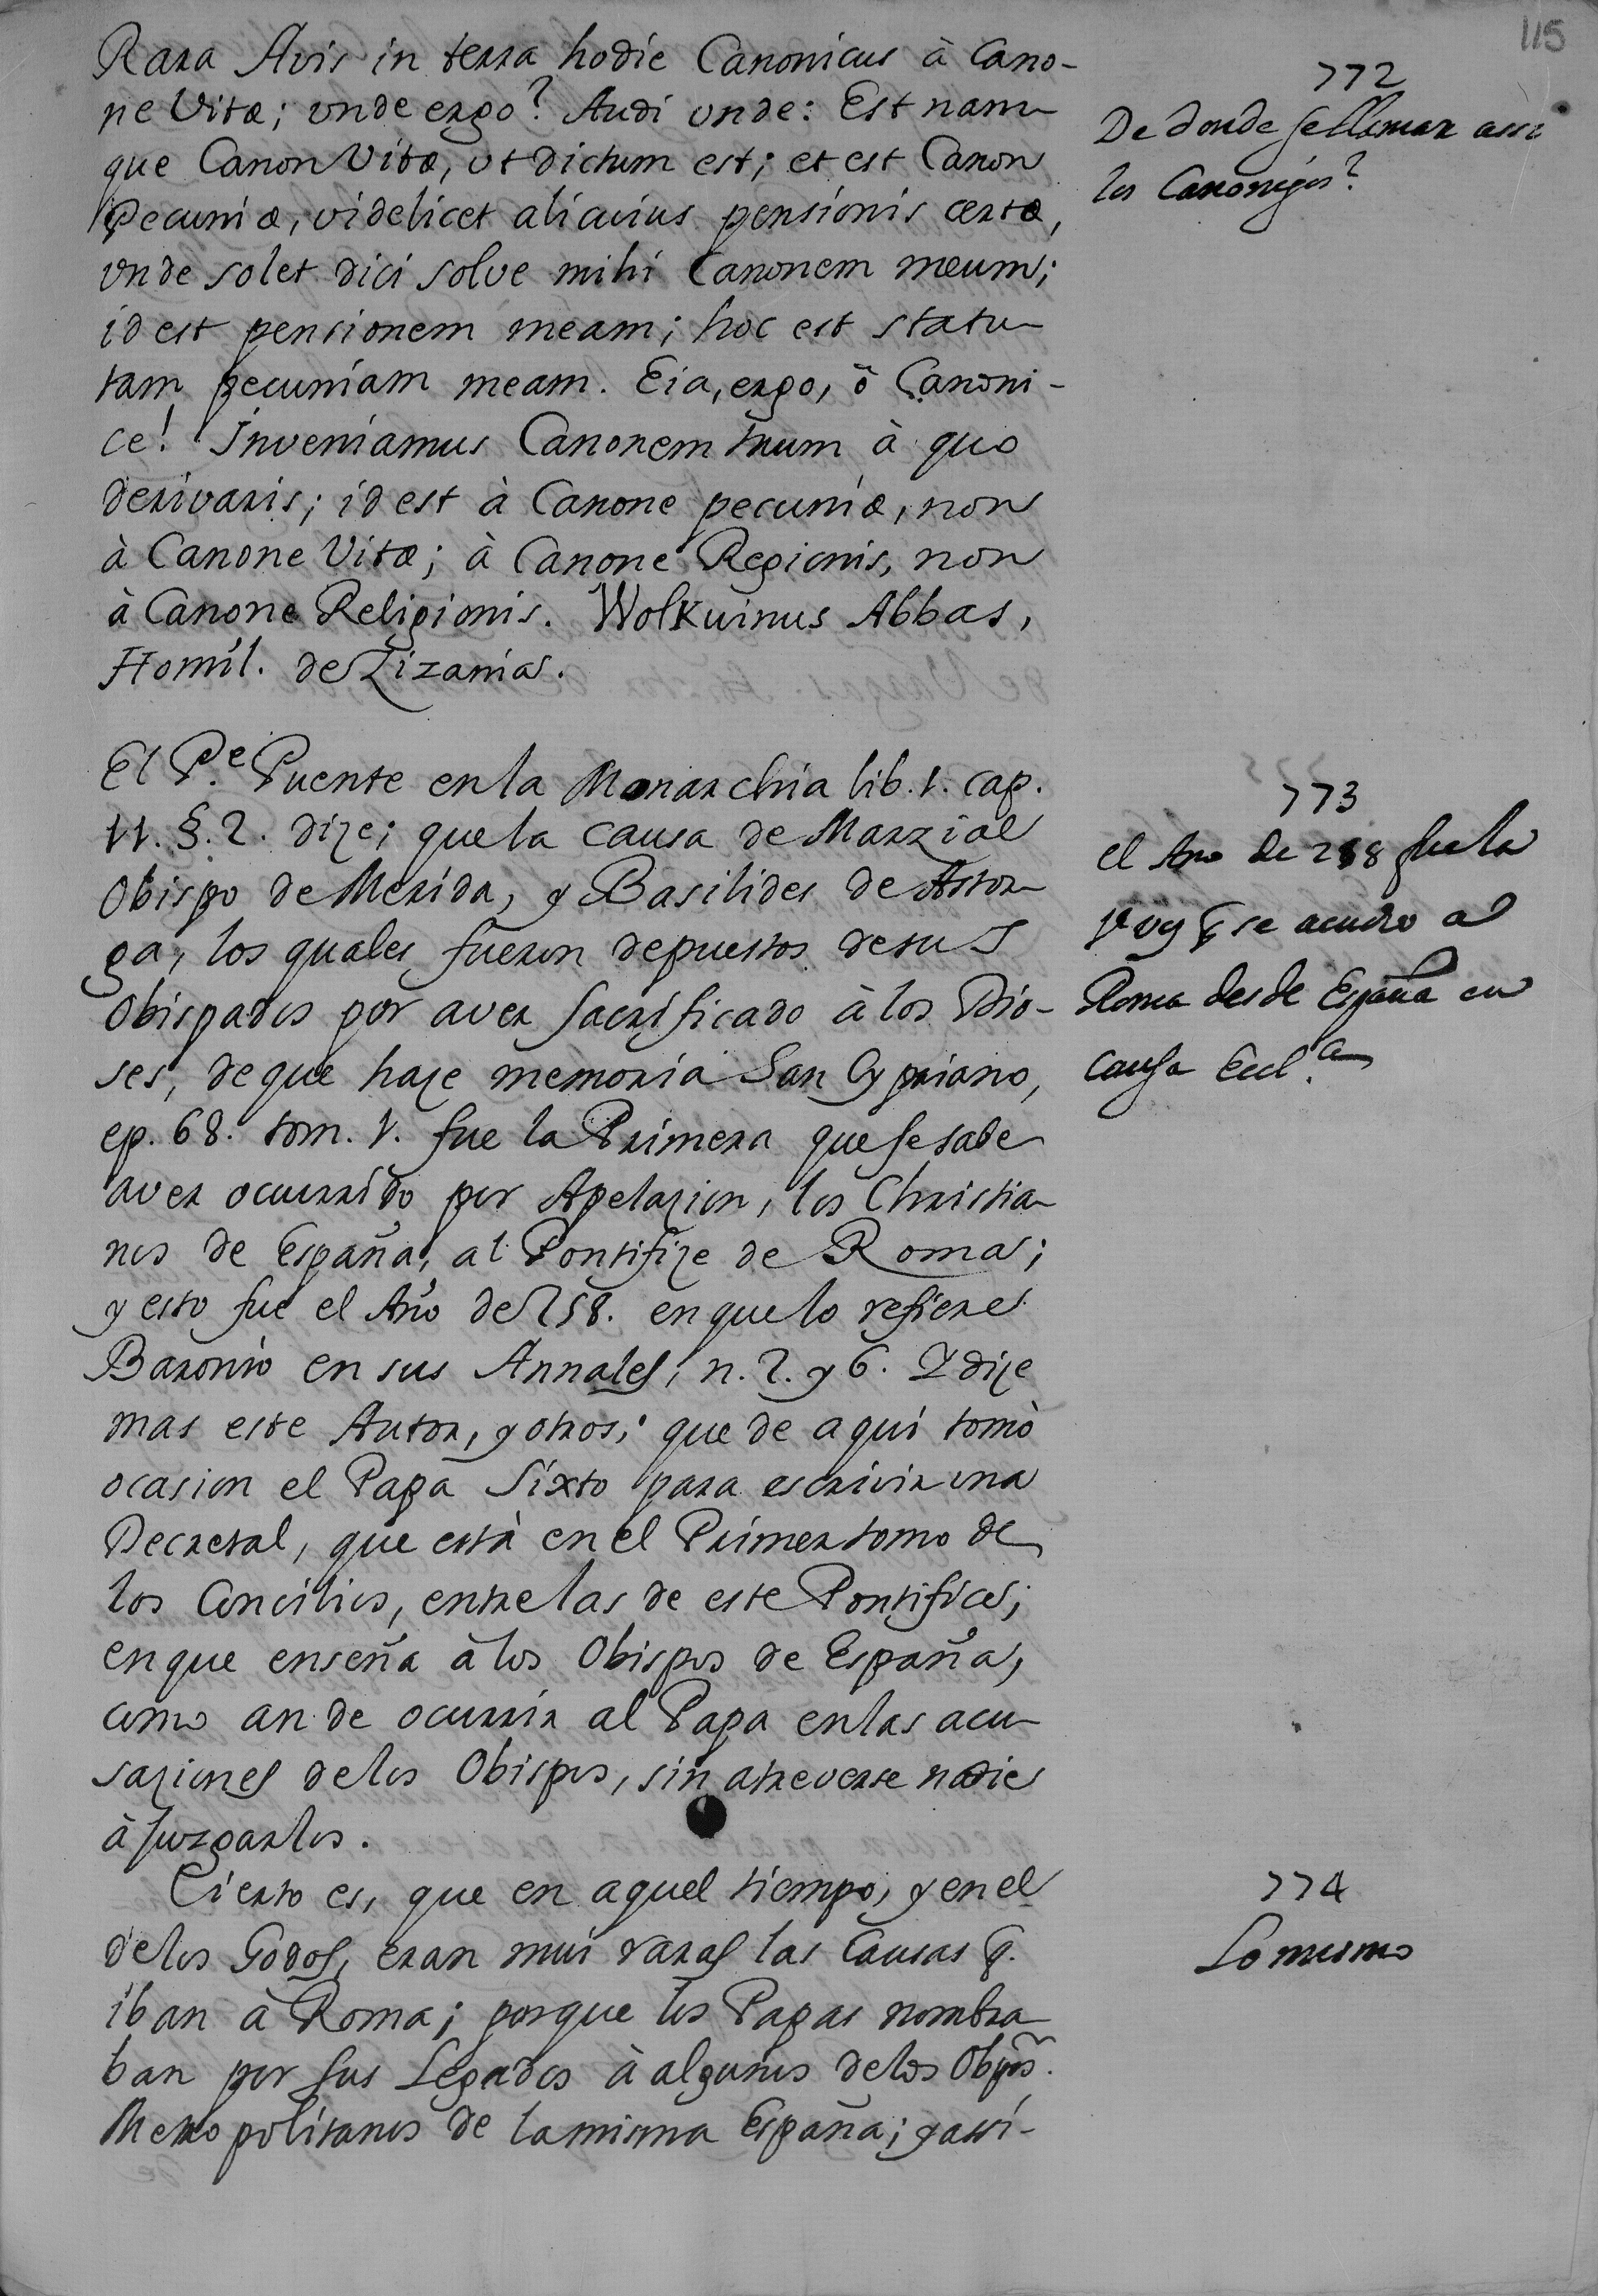 115
Rara Avis in terra hodie Canonicus à Cano-
ne Vitæ; vnde ergo? Audi vnde: Est nam-
que Canon Vitæ, vt dictum est; et est Canon
Pecuniæ, videlicet alicuius pensionis certæ,
vnde solet dici solve mihi Canonem meum;
id est pensionem meam; hoc est statu-
tam pecuniam meam. Eia, ergo, ô Canoni-
ce! Inveniamus Canonem tuum à quo
derivaris; id est à Canone pecuniæ, non
à Canone Vitæ; à Canone Regionis, non
à Canone Religionis. Wolkuinus Abbas,
Homil. de Zizania.
772
De donde se llaman assi
los Canonigos?
El P.e Puente en la Monarchia lib. 1. cap.
11. §. 2. dize; que la causa de Marzial
Obispo de Merida, y Basilides de Astor-
ga, los quales fueron depuestos de sus
Obispados por aver sacrificado à los Dio-
ses, de que haze memoria San Cypriano,
ep. 68. tom. 1. fue la Primera que se sabe
aver ocurrido por Apelazion, los Christia-
nos de España, al Pontifize de Roma;
y esto fue el Año de 258. en que lo refiere
Baronio en sus Annales, n. 2. y 6. Y dize
mas este Autor, y otros; que de aqui tomò
ocasion el Papa Sixto para escrivir una
Decretal, que està en el Primer tomo de
los Concilios, entre las de este Pontifice;
en que enseña à los Obispos de España,
como an de ocurrir al Papa en las acu-
saziones de los Obispos, sin atreverse nadie
à juzgarlos.
773
el Año de 258 fue la
1.a vez q se acudio a
Roma desde España en
causa Eccl.ca
Cierto es, que en aquel tiempo, y en el
de los Godos, eran mui raras las Causas q.
iban à Roma; porque los Papas nombra-
ban por sus Legados à algunos de los Obpõs.
Metropolitanos de la misma España; y assi-
774
Lo mismo